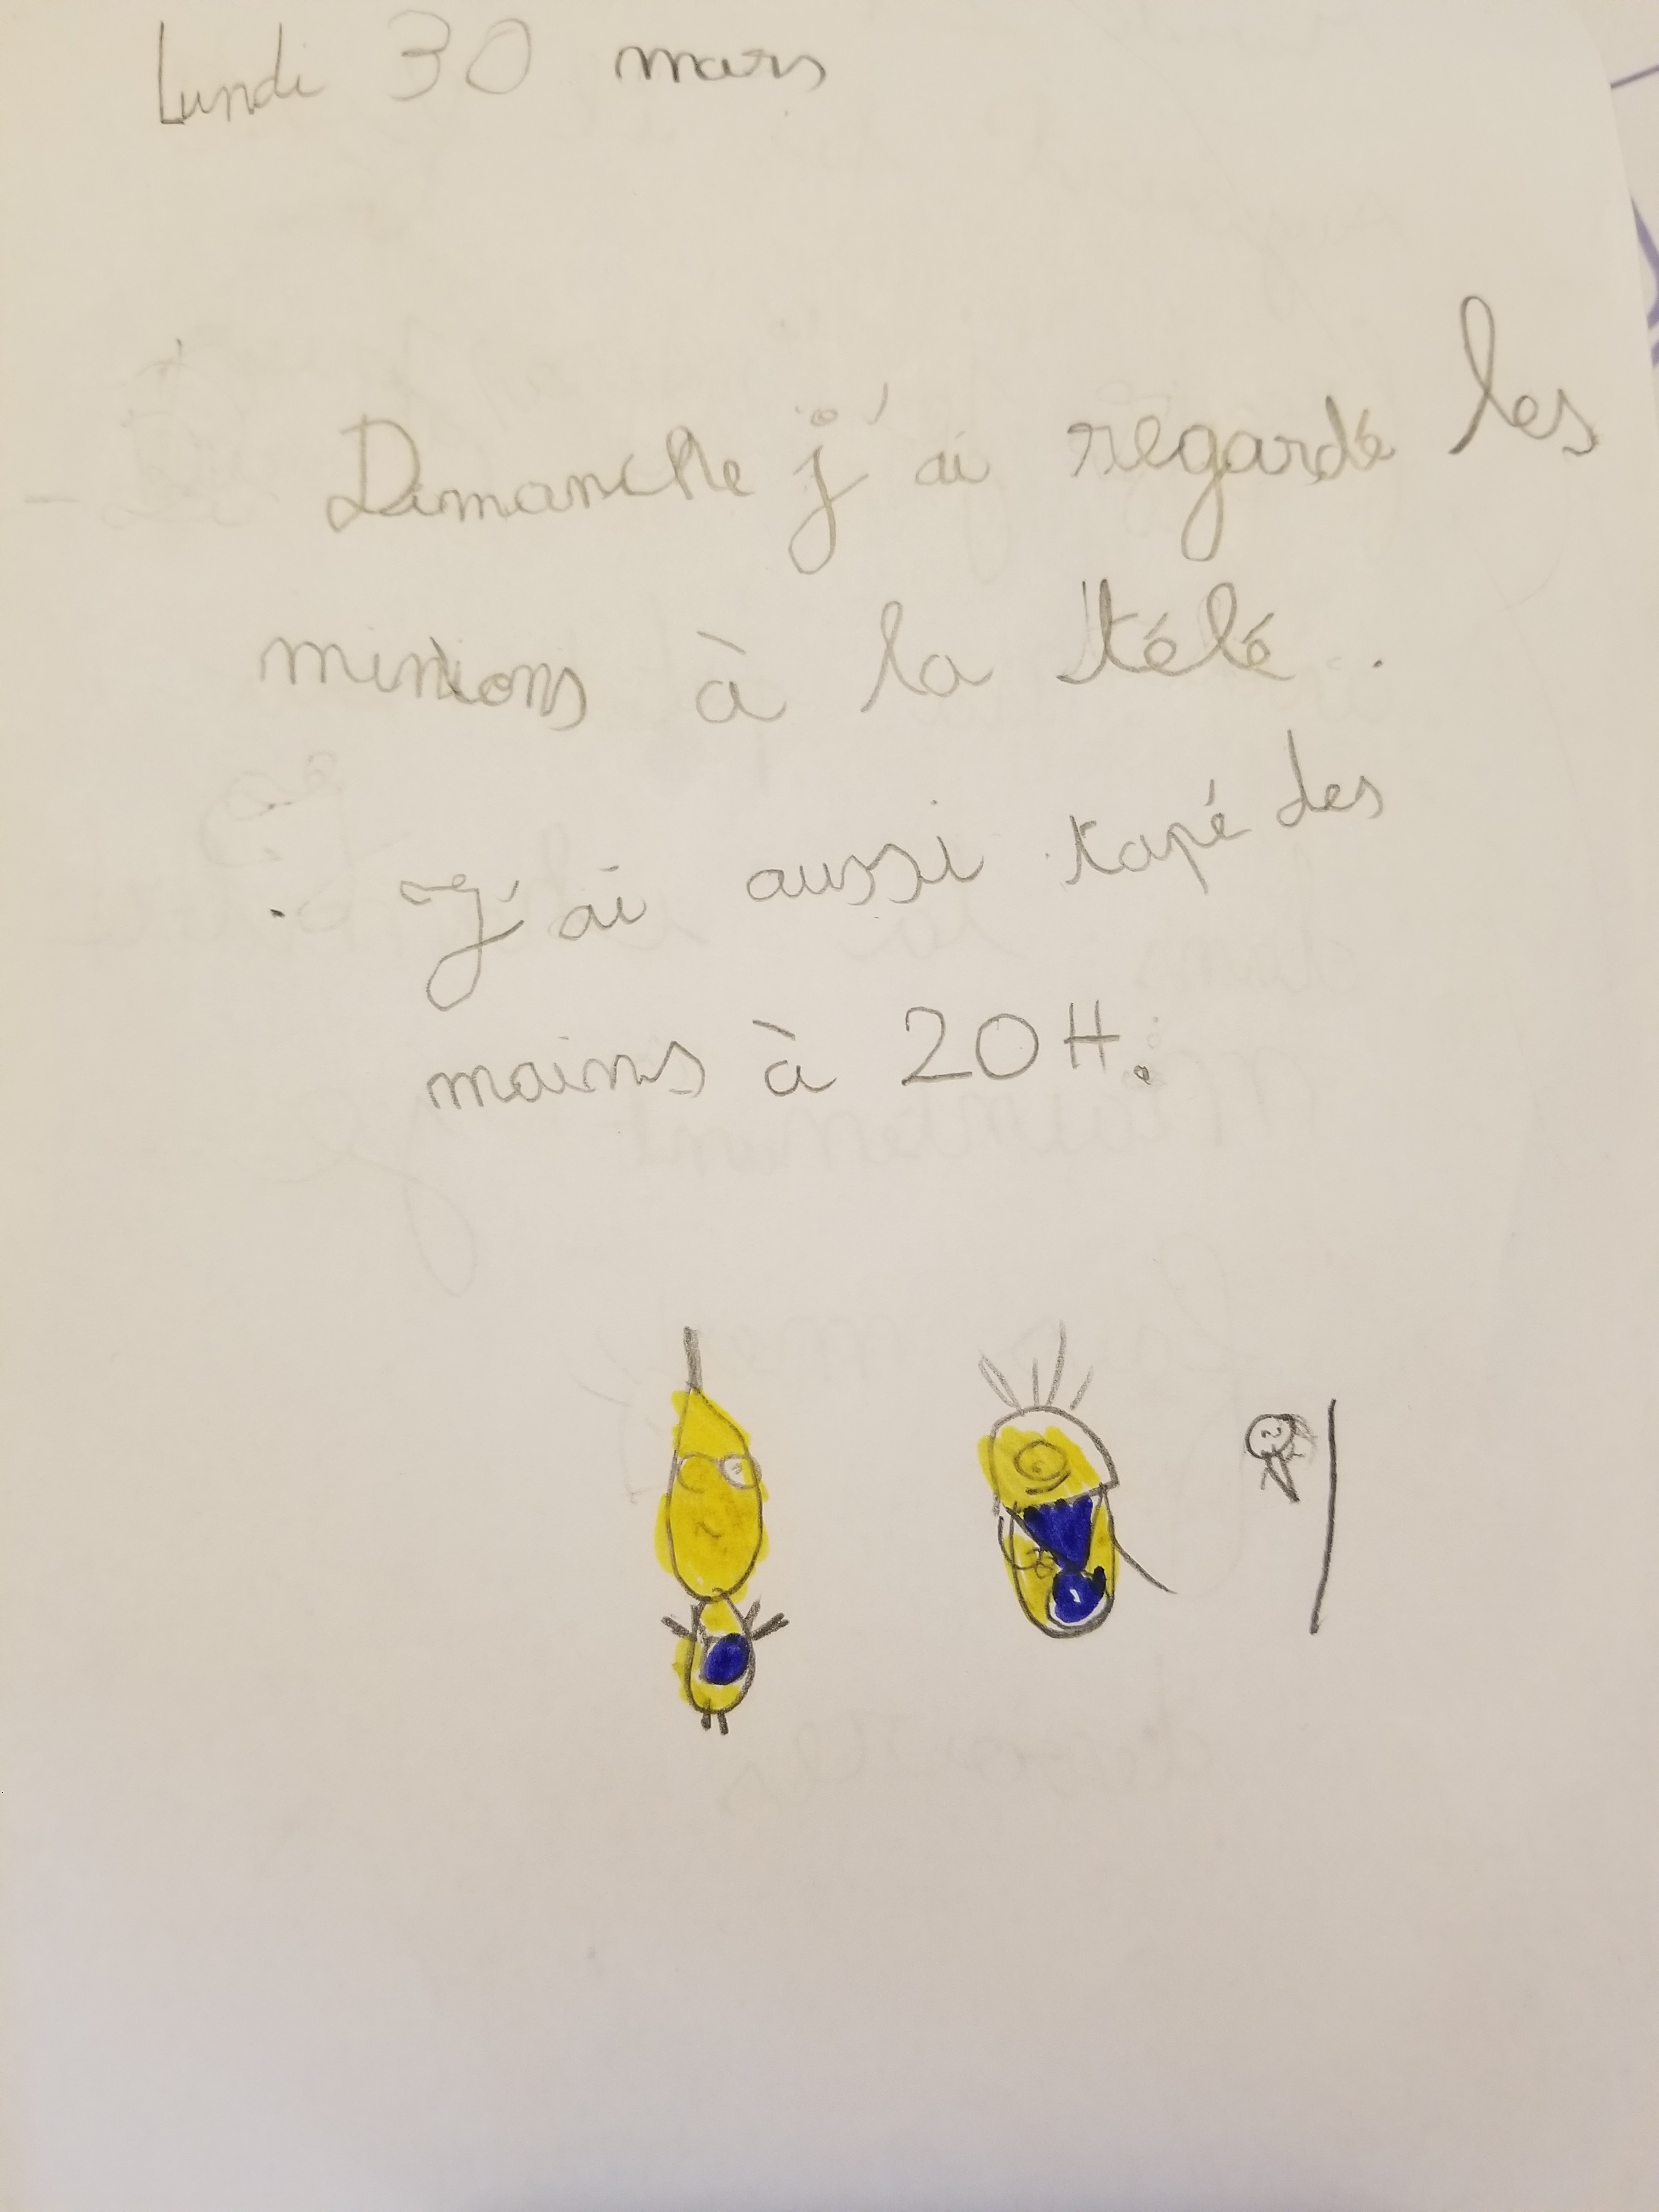 Lundi 30 mars
Dimanche j'ai regardé les
minions à la télé.
J'ai aussi tapé des
mains à 20H.